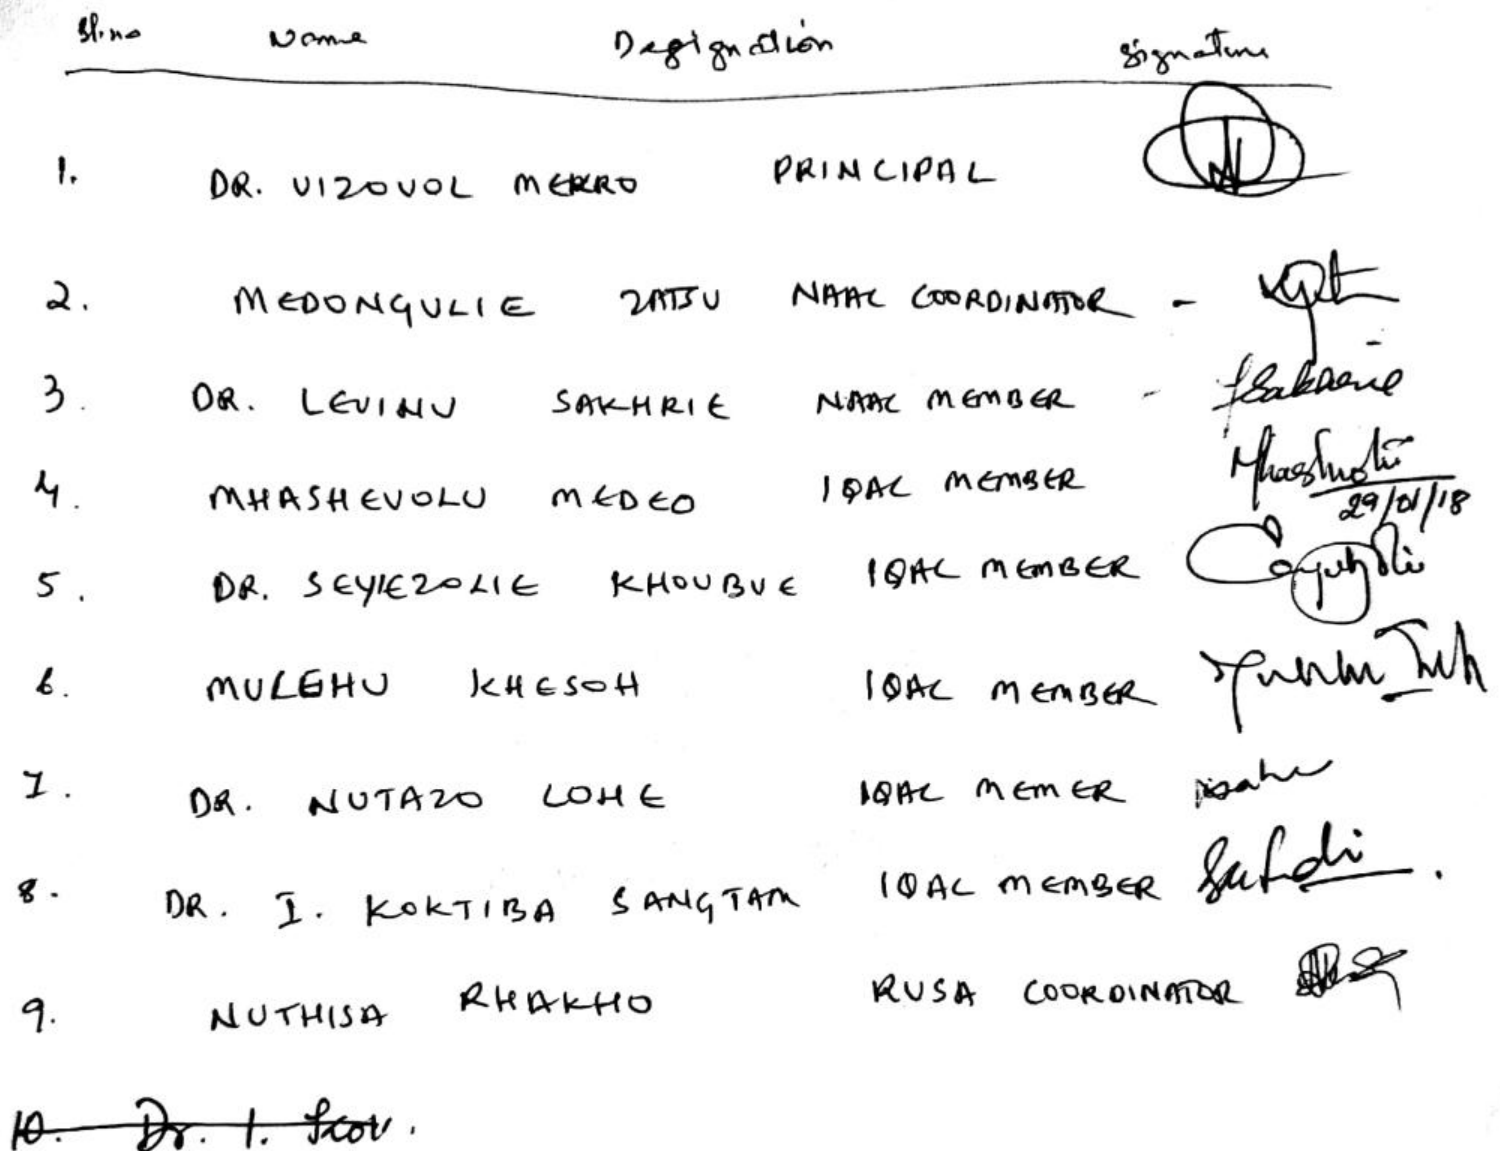 Sl.no Name Designation Signature
1. DR. VIZOVOL MEKRO PRINCIPAL
2. MEDONGULIE ZATSU NAAC COORDINATOR -
3. DR. LEVINU SAKHRIE NAAC MEMBER - Sakhrie
4. MHASHEVOLU MEDEO IQAC MEMBER
29/01/18
5. DR. SEYIEZOLIE KHOUBVE IQAC MEMBER
6. MULEHU KHESOH IQAC MEMBER
7. DR. NUTAZO LOHE IQAC MEMER
8. DR. I. KOKTIBA SANGTAM IQAC MEMBER
9. NUTHISA RHAKHO RUSA COORDINATOR
10. Dr. I.